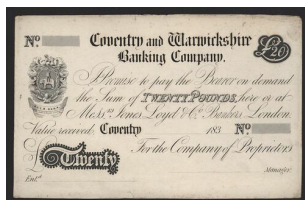 No. £20
Coventry and Warwickshire
Banking Company.
I Promise to pay the Bearer on demand
the Sum of TWENTY POUNDS, here or at
Messrs. Jones, Loyd & Co. Bankers London.
Value received Coventry 183 No.
£Twenty For the Company of Proprietors
Entd. Manager